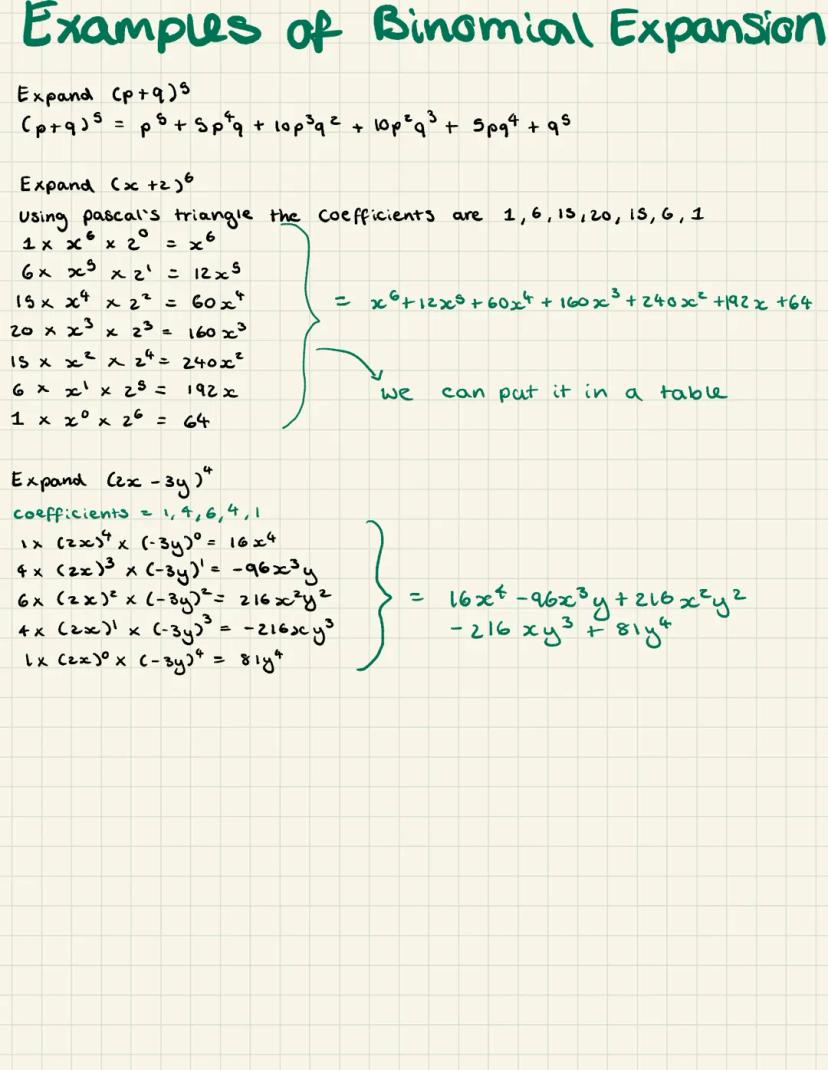 Examples of Binomial Expansion
Expand (p+q)⁵
(p+q)⁵ = p⁵ + 5p⁴q + 10p³q² + 10p²q³ + 5pq⁴ + q⁵
Expand (x+2)⁶
Using pascal's triangle the coefficients are 1, 6, 15, 20, 15, 6, 1
1 × x⁶ × 2⁰ = x⁶
6 × x⁵ × 2¹ = 12x⁵
15 × x⁴ × 2² = 60x⁴
20 × x³ × 2³ = 160x³
15 × x² × 2⁴ = 240x²
6 × x¹ × 2⁵ = 192x
1 × x⁰ × 2⁶ = 64
= x⁶+12x⁵+60x⁴+160x³+240x²+192x+64
we can put it in a table
Expand (2x-3y)⁴
coefficients = 1, 4, 6, 4, 1
1× (2x)⁴ × (-3y)⁰ = 16x⁴
4× (2x)³ × (-3y)¹ = -96x³y
6× (2x)² × (-3y)² = 216x²y²
4× (2x)¹ × (-3y)³ = -216xy³
1× (2x)⁰ × (-3y)⁴ = 81y⁴
= 16x⁴ -96x³y + 216x²y²
- 216xy³ + 81y⁴